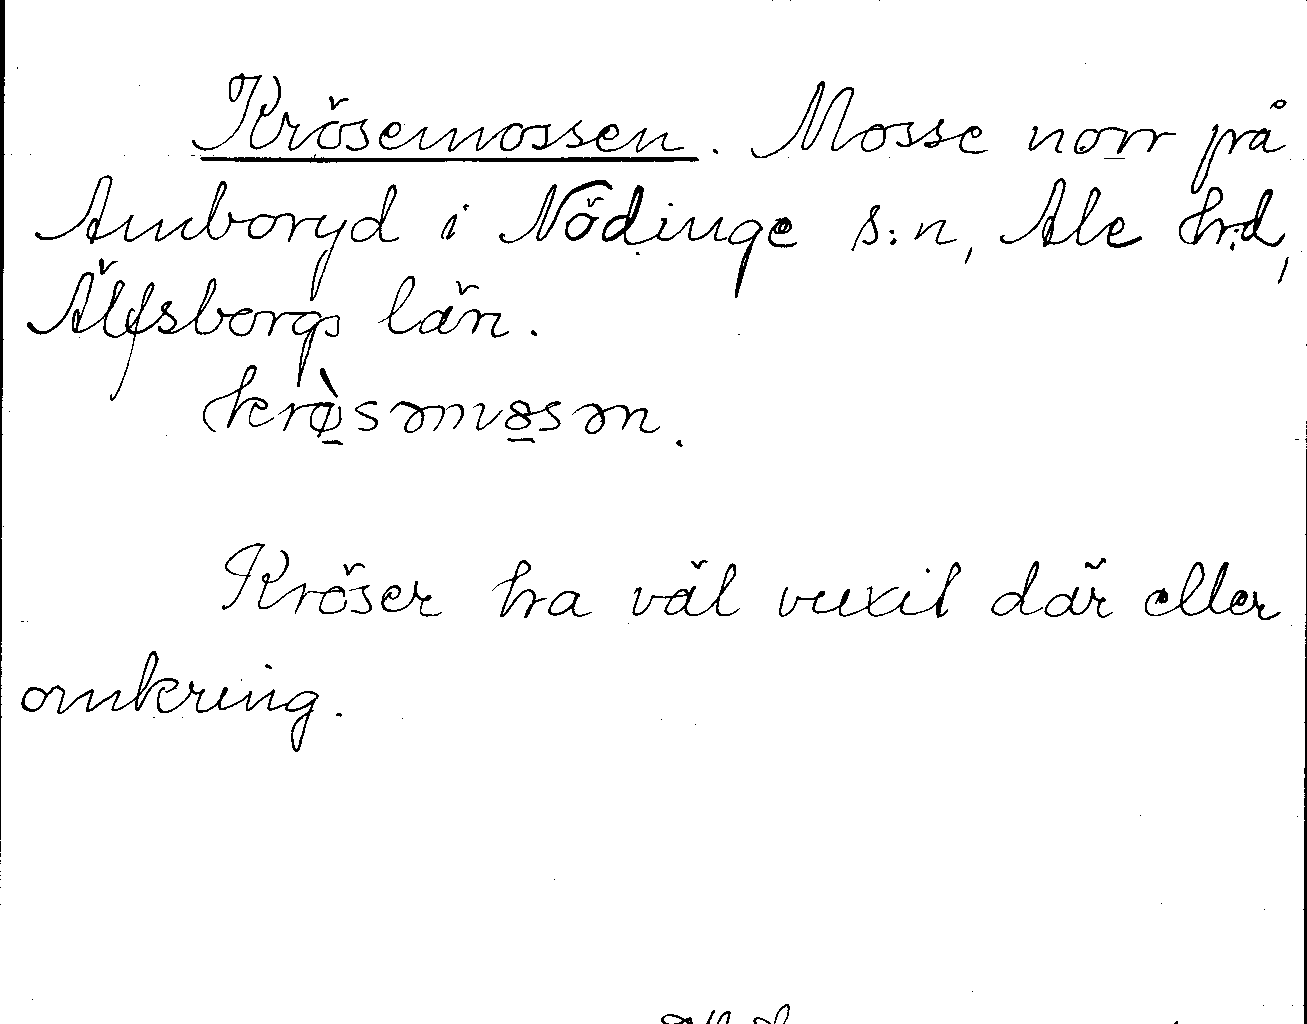 Krösemossen. Mosse norr på
Amboryd i Nödinge s:n, Ale h:d,
Älfsborgs län.
krø̀səmɷsən.
Kröser ha väl vuxit där eller
omkring.